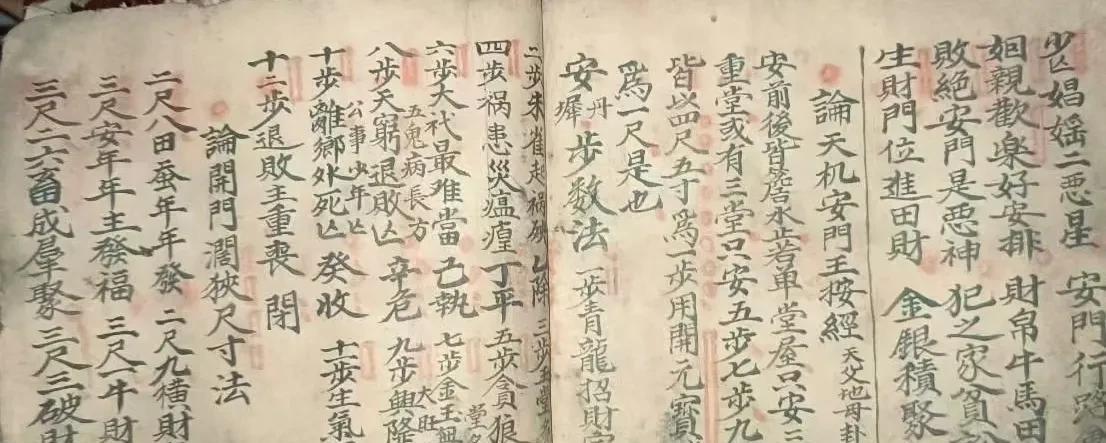 少亡娼婬二恶星 安門行路
姻親歡樂好安排 財帛牛馬田
敗絕安門是恶神 犯之家貧
生財門位進田財 金銀積聚
論天机安門王按經 天父地母卦
安前後皆簷水止若单堂屋只安三
重堂或有三堂只安五步七步九
皆以四尺五寸為一步用開元寶
為一尺是也
安丹墀步数法 一步青龍招財
二步朱雀起祸 乙除 三步
四步祸患災瘟瘴 丁平 五步貪狼
六步大 最难當 己執 七步金玉
五鬼病長方 大旺
八步天窮退敗亡 辛危 九步興隆
公事少年亡
十步離鄉外死亡 癸收 十一步生氣
十二步退敗主重喪 閉
論開門濶狹尺寸法
二尺八田蚕年年發 二尺九横財
三尺安年年主發福 三尺一牛財
三尺二六畜成羣聚 三尺三破財